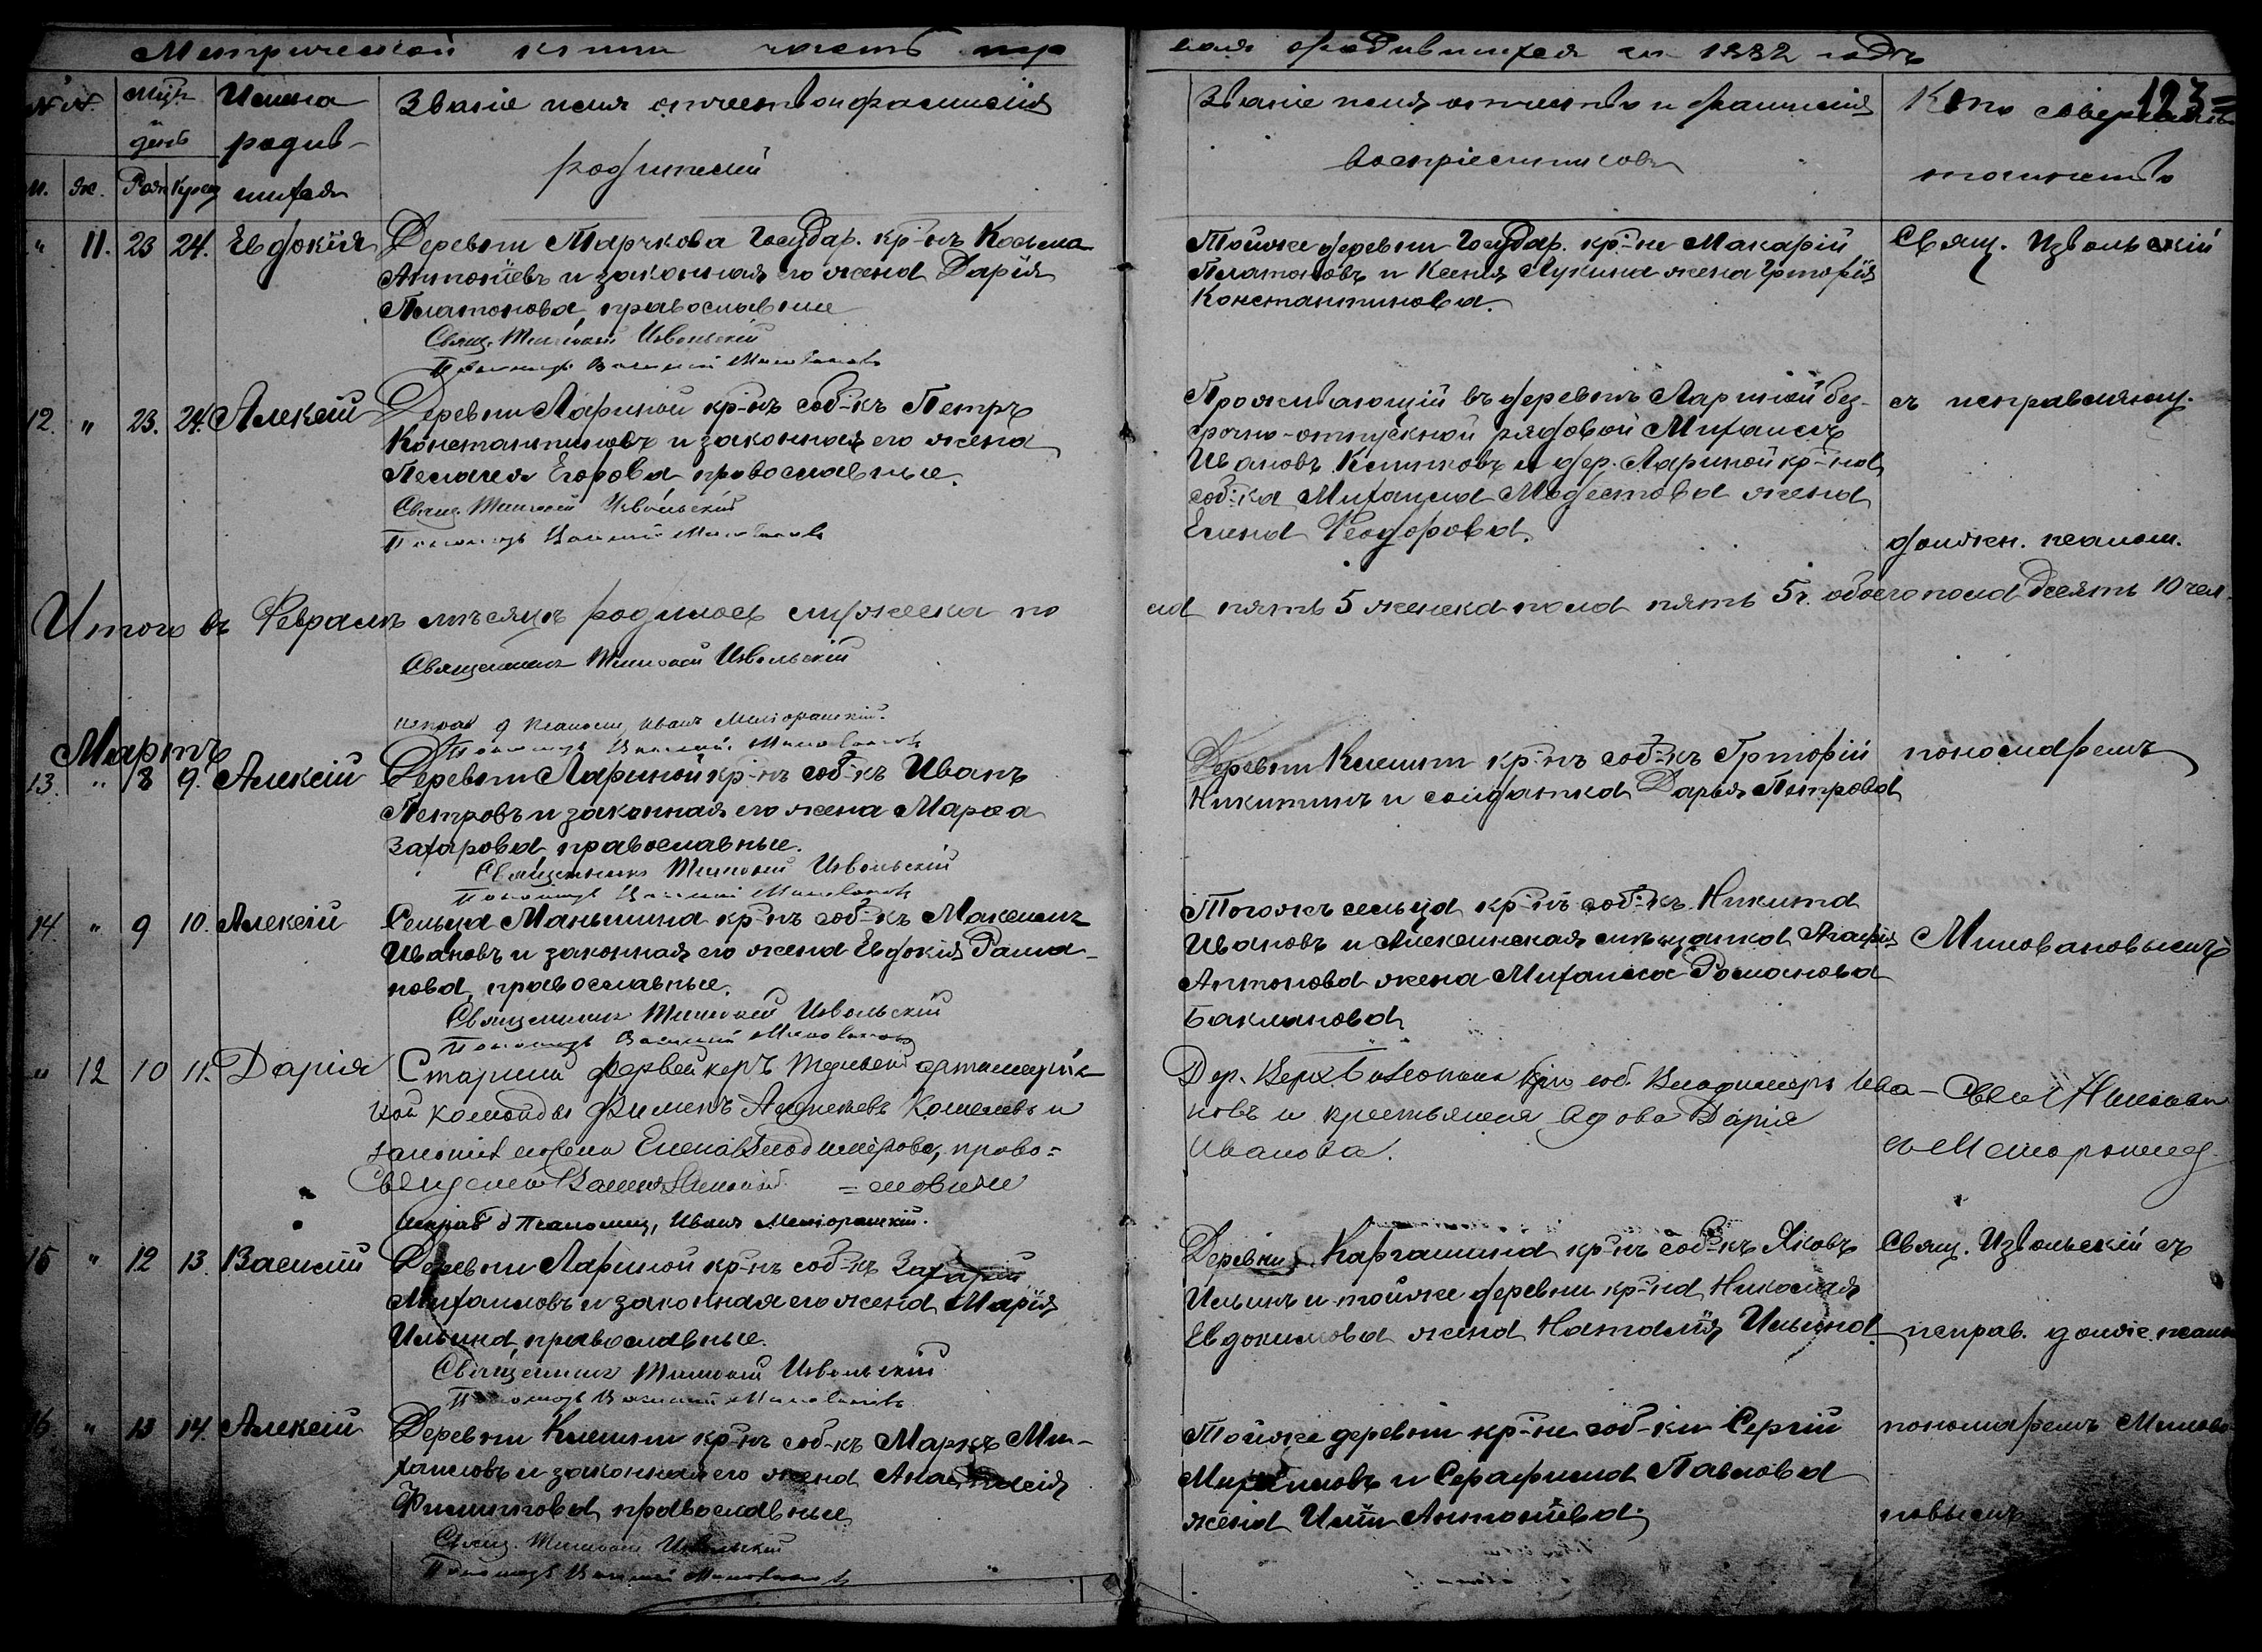 Метрической книги часть пер
вая о родившихся за 1882 годъ
№ №
Мцъ и день
Имена родив-
шихся
М.
Ж.
Рож
Крещ
Званіе имя отчество и фамилія
родителей
Званіе имя отчество и фамилія
воспріемниковъ
Кто совершалъ
таинство
123
" 11. 23 24. Евдокія
Деревни Марчкова Государ. кр-нъ Косьма
Антоніевъ и законная его жена Дарія
Платонова, православные
Свящ. Тимоѳей Извольскій
Пономарь Василий Миловановъ
Тойже деревни Государ. кр-не Макарій
Платоновъ и Ксенія Лукина жена Григорія
Константинова.
Свящ. Извольскій
12. " 23. 24. Алексій
Деревни Лариной кр-нъ соб-къ Петръ
Константиновъ и законная его жена
Пелагея Егорова православные.
Свящ. Тимоѳей Извольскій
Пономарь Василий Миловановъ
Проживающій въ деревнѣ Лариной без-
срочно-отпускной рядовой Михаилъ
Ивановъ и дер. Лариной кр-на
соб-ка Михаила Модестова жена
Елена Ѳеодорова.
съ исправляющ.
должн. псалом.
Итого въ Февралѣ мѣсяцѣ родилось мужеска по
ла пять 5 женска пола пять 5 ч. обоего пола десять 10 чел.
Священникъ Тимоѳей Извольскій
исправ д псаломщ, Иванъ Меліоранскій.
Пономарь Василий Миловановъ
Мартъ
13. " 8 9. Алексій
Деревни Лариной кр-нъ соб-къ Иванъ
Петровъ и законная его жена Марѳа
Захарова православные.
Священникъ Тимоѳей Извольскій
Пономарь Василий Миловановъ
Деревни Клешни кр-нъ соб-къ Григорій
Никитинъ и солдатка Дарья Петрова
пономаремъ
14. " 9 10. Алексій
Сельца Маньшина кр-нъ соб-къ Максимъ
Ивановъ и законная его жена Евдокія Рома-
нова, православные.
Священникъ Тимоѳей Извольскій
Пономарь Василий Миловановъ
Тогожъ сельца кр-нъ соб-къ Никита
Ивановъ и Алексинская мѣщанка Агафія
Антонова жена Михаила Романова
Бакланова
Миловановымъ
" 12 10 11. Дарія
Старший фервейкеръ
команды Кошелевъ и
Елена Владимірова, право-
= славные
Исправ д Псаломщ, Иванъ Меліоранскій.
Дер. соб. Владимиръ Ива-
новъ и крестьянская вдова Дарія
Иванова.
15 " 12 13. Василій
Деревни Лариной кр-нъ соб-къ Захарій
Михаиловъ и законная его жена Марія
Ильина, православные.
Священникъ Тимоѳей Извольскій
Пономарь Василий Миловановъ
Деревни Каргашина кр-нъ соб-къ Яковъ
Ильинъ и тойже деревни кр-на Николая
Евдокимова жена Наталія Ильина
Свящ. Извольскій съ
исправ. долже. псалом
16. " 13 14. Алексій
Деревни Клешни кр-нъ соб-къ Маркъ Ми-
хаиловъ и законная его жена Анастасія
Филиппова православные
Свящ. Тимоѳей Извольскій
Пономарь Василий Миловановъ
Тойже деревни кр-не соб-ки Сергій
Михаиловъ и Серафима Павлова
жена Иліи Антоніева
пономаремъ Милова-
новымъ